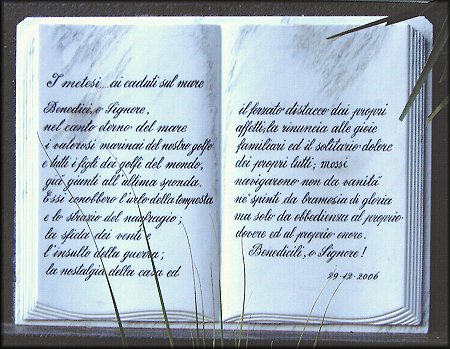 I metesi... ai caduti sul mare
Benedici, o Signore,
nel canto eterno del mare
i valorosi marinai del nostro golfo
e tutti i figli dei golfi del mondo,
già giunti all'ultima sponda.
Essi conobbero l'urlo della tempesta
e lo strazio del naufragio;
la sfida dei venti
l'insulto della guerra;
la nostalgia della casa ed
il forzato distacco dai propri
affetti; la rinuncia alle gioie
familiari ed il solitario dolore
dei propri lutti; mossi
navigarono non da vanità
nè spinti da bramosia di gloria
ma solo da obbedienza al proprio
dovere ed al proprio onore.
Benedicili, o Signore!
29-12-2006